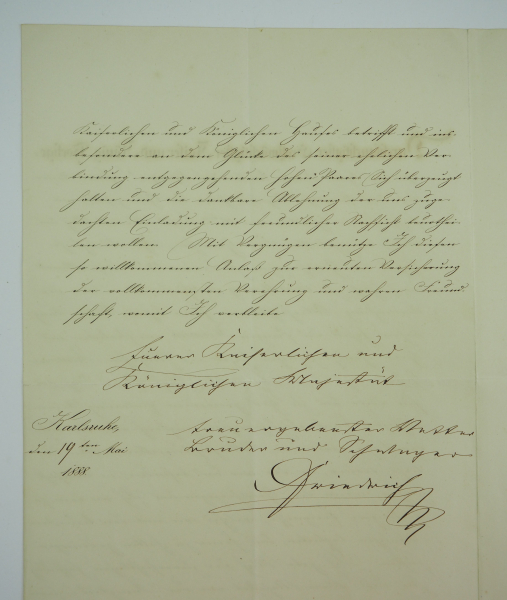 Kaiserlichen und Königlichen Hauses betrifft und ins-
besondere an dem Glücke des seiner ehelichen Ver-
bindung entgegengehenden hohen Paares Sich überzeugt
halten und die dankbare Ablehnung der uns zuge-
dachten Einladung mit freundlicher Nachsicht beurthei-
len wollen. Mit Vergnügen benütze Ich diesen
so willkommenen Anlaß zur erneuten Versicherung
der vollkommensten Verehrung und wahren Freund-
schaft, womit Ich verbleibe
Euerer Kaiserlichen und
Königlichen Majestät
Karlsruhe,
den 19ten Mai
1888
treuergebenster Vetter
Bruder und Schwager
Friedrich